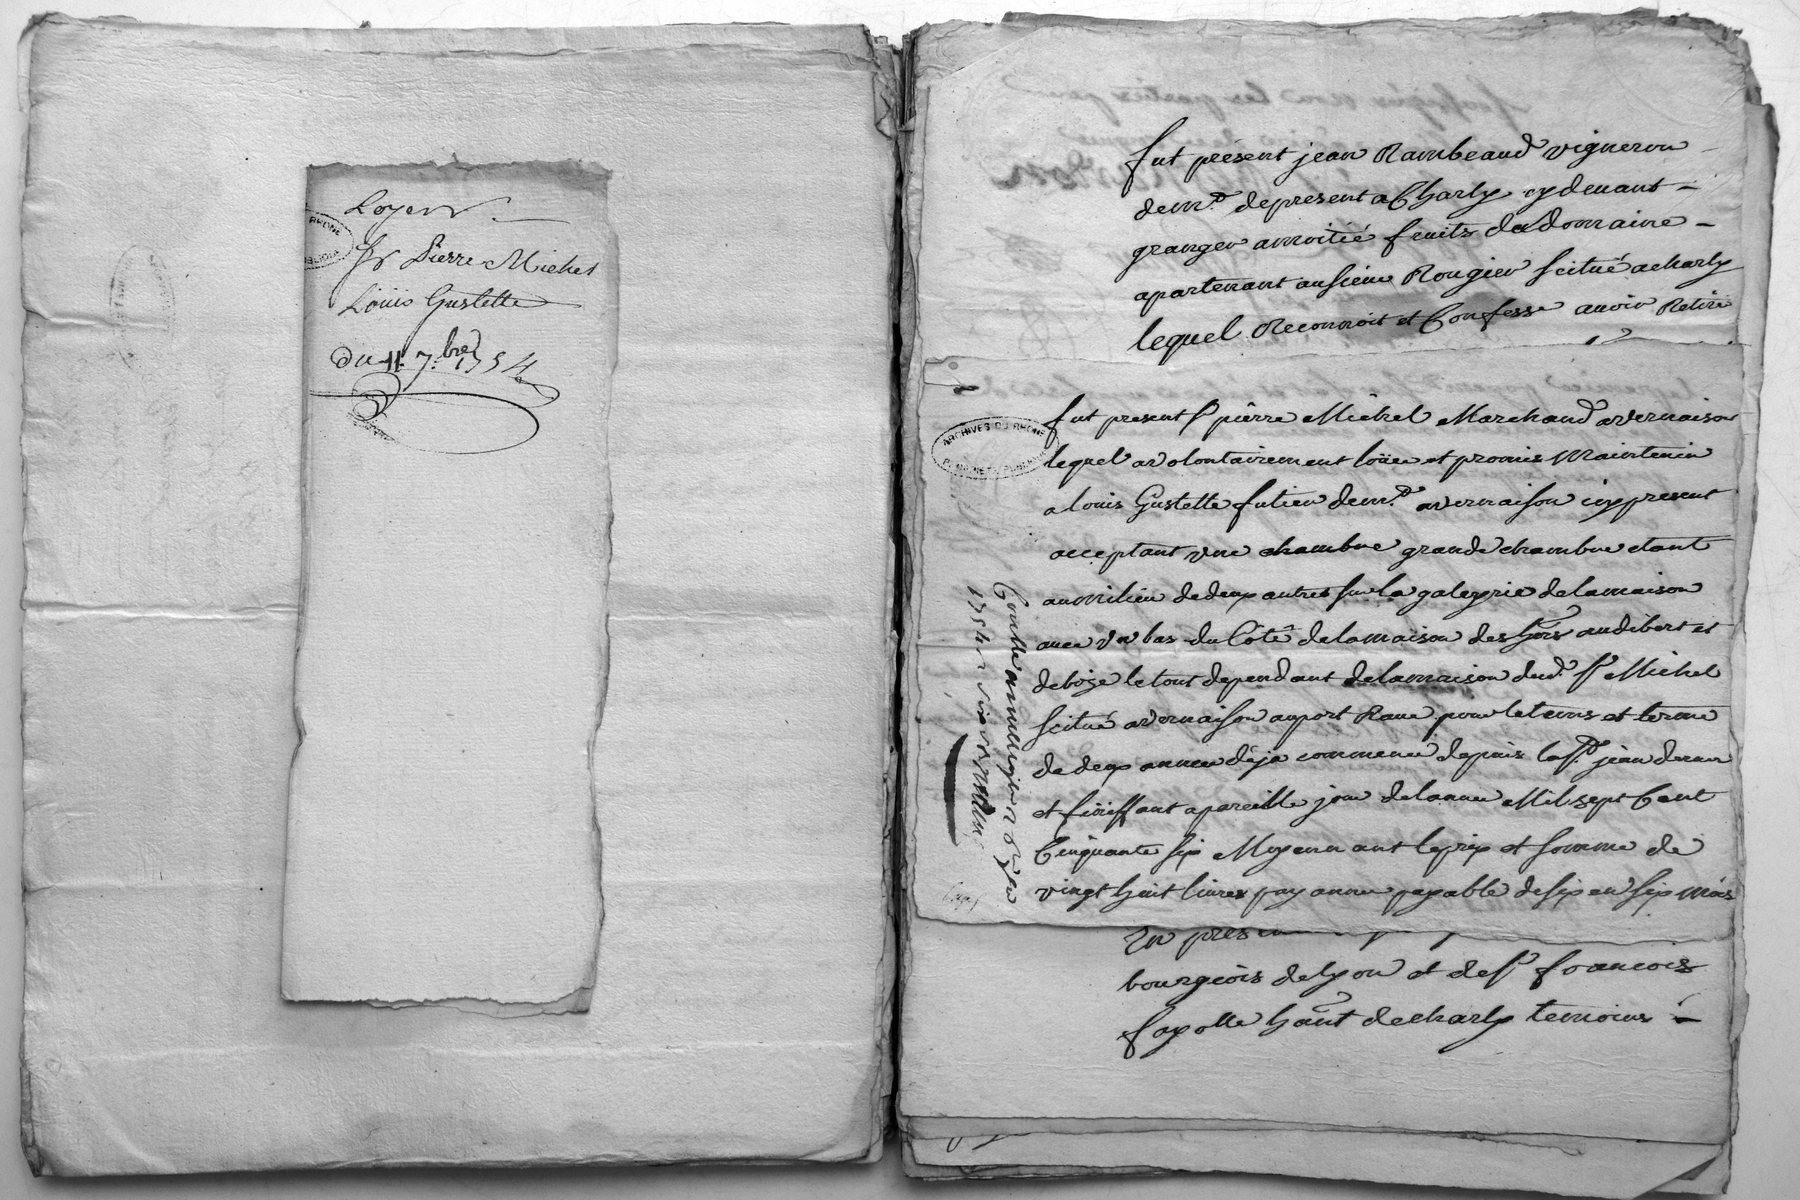 Loyer
Sr Pierre Michel
Louis Gustette
du 11 7.bre 1754
RHONE
fut présent jean Rambeaud vigneron
demt. depresent a Charly cydevant
granger amoitié fruits dudomaine
apartenant ausieur Rougier scitué acharly
lequel Reconnoit et Confesse avoir Retiré
ARCHIVES DU RHONE
fut present sr pierre Michel Marchand avernaison
lequel avolontairement loüée et promis Maintenir
alouis Gustette futier demt. avernaison icy present
acceptant une chambre grande chambre etant
aumilieu dedeux autres sur la galeyrie delamaison
avec un bas du Côté delamaison des hoirs audibert et
deboze letout dependant delamaison dud. sr Michel
scitué avernaison auport Rave pour letems et terme
de deux année déja commencé depuis last. jean dernier
et finissant apareille jour delannée Mil sept Cent
Cinquante six Moyenant leprix et somme de
vingt huit livres par année payable desix en six mois
1754
En presen
bourgeois delyon et desr francois
fayolle hant decharly temoins